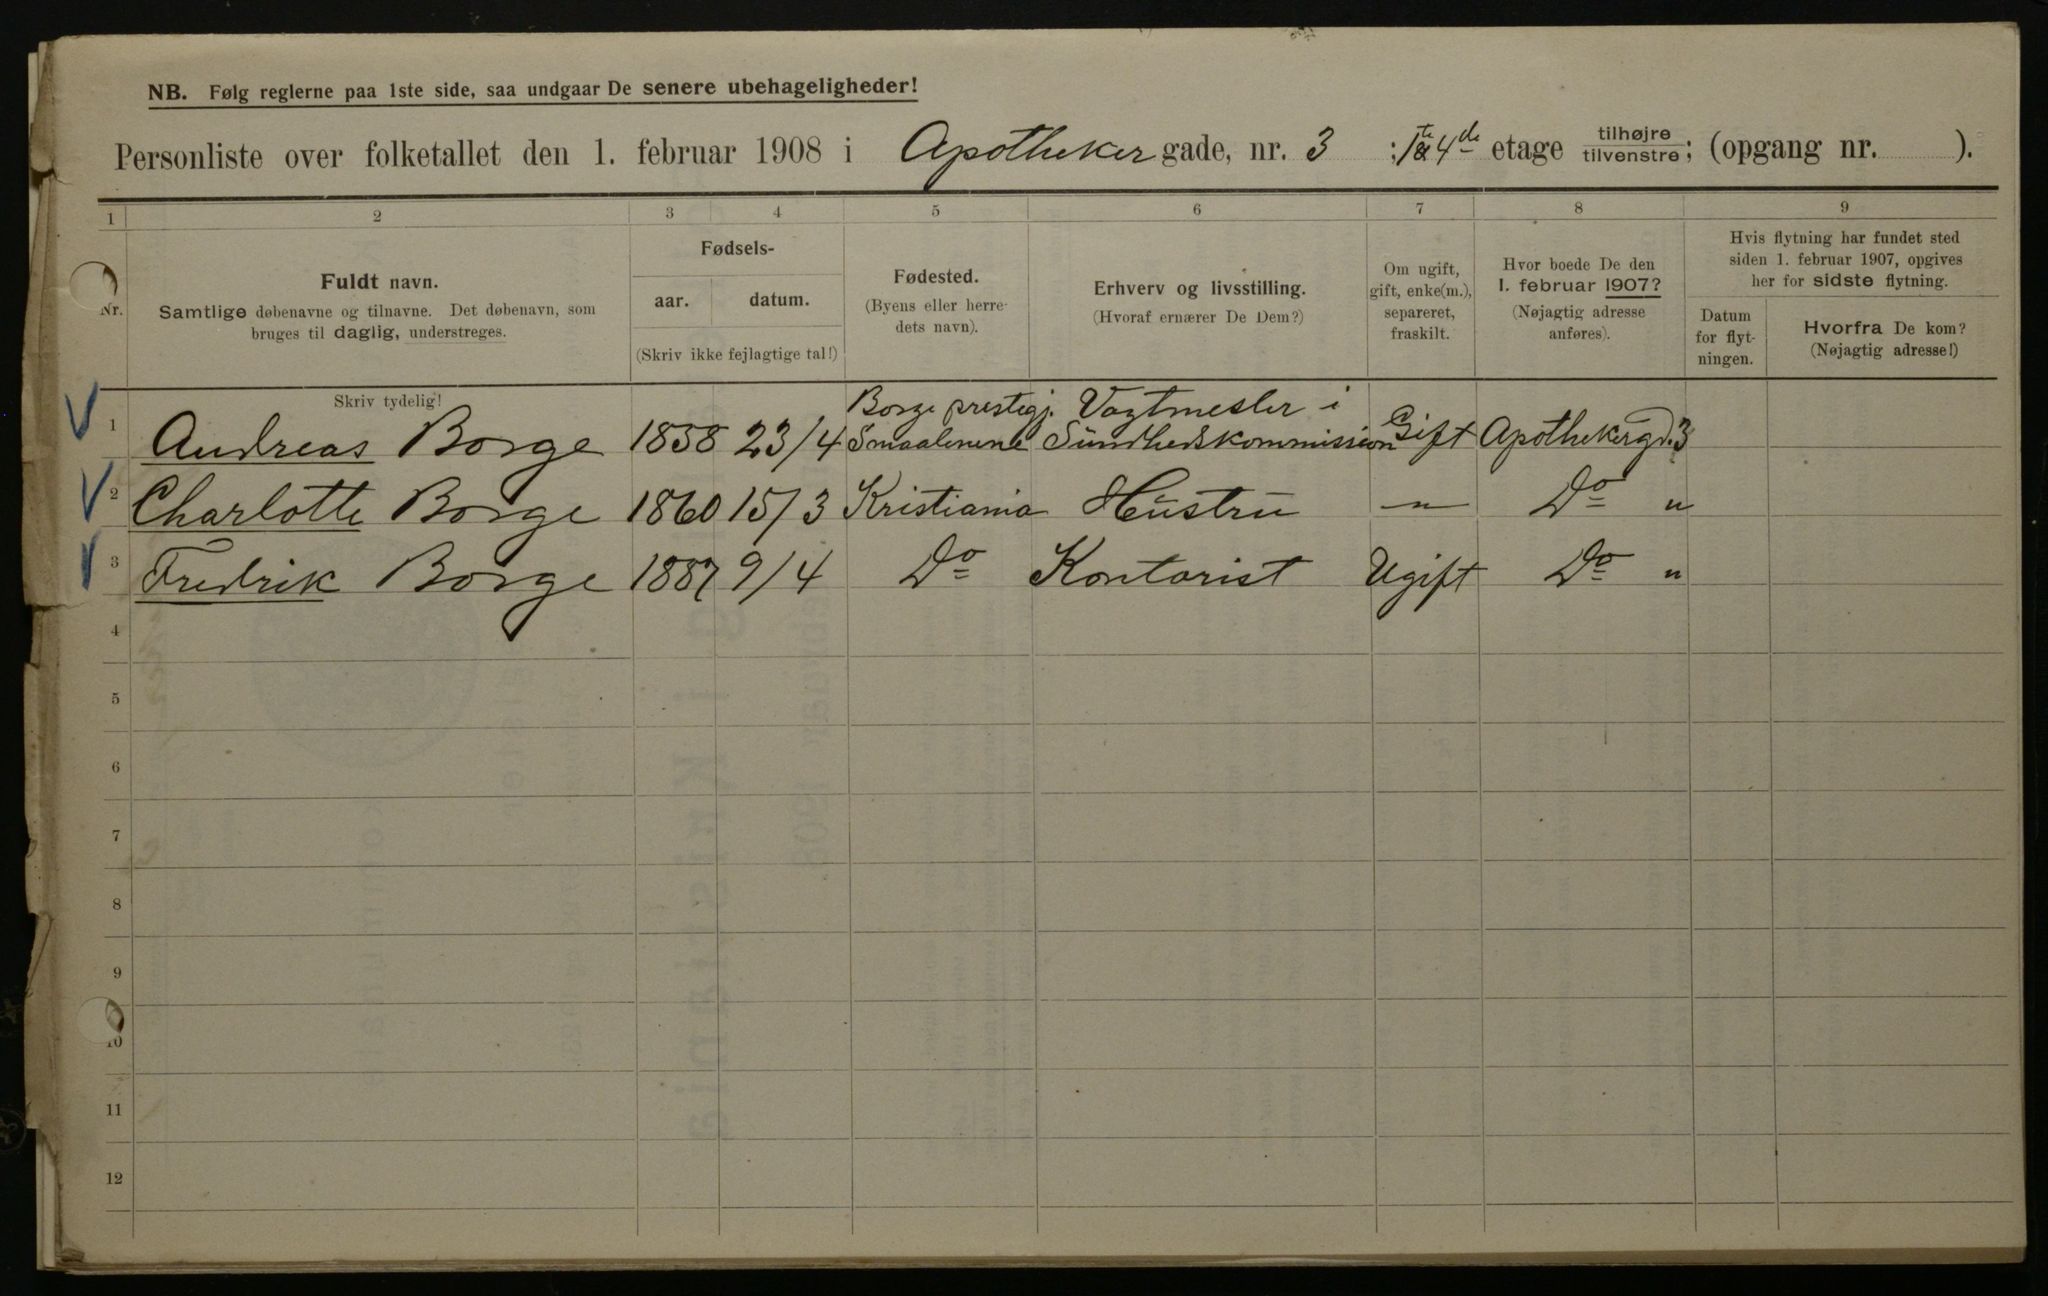 NB. Følg reglerne paa 1ste side, saa undgaar De senere ubehageligheder!
Personliste over folketallet den 1. februar 1908 i Apotheker gade, nr. 3 ; 1te & 4de etage tilhøjre/tilvenstre; (opgang nr. ).
1 2 3 4 5 6 7 8 9
Nr.
Fuldt navn.
Samtlige døbenavne og tilnavne. Det døbenavn, som
bruges til daglig, understreges.
Fødsels-
aar. datum.
(Skriv ikke fejlagtige tal!)
Fødested.
(Byens eller herre-
dets navn).
Erhverv og livsstilling.
(Hvoraf ernærer De Dem?)
Om ugift,
gift, enke(m.),
separeret,
fraskilt.
Hvor boede De den
1. februar 1907?
(Nøjagtig adresse
anføres).
Hvis flytning har fundet sted
siden 1. februar 1907, opgives
her for sidste flytning.
Datum
for flyt-
ningen.
Hvorfra De kom?
(Nøjagtig adresse!)
Skriv tydelig!
Borge prestegj. Vagtmester i
1 Andreas Borge 1858 23/4 Smaalenene Sundhedskommission Gift Apothekergd. 3
2 Charlotte Borge 1860 15/3 Kristiania Hustru " Do "
3 Fredrik Borge 1887 9/4 Do Kontorist Ugift Do "
4
5
6
7
8
9
10
11
12